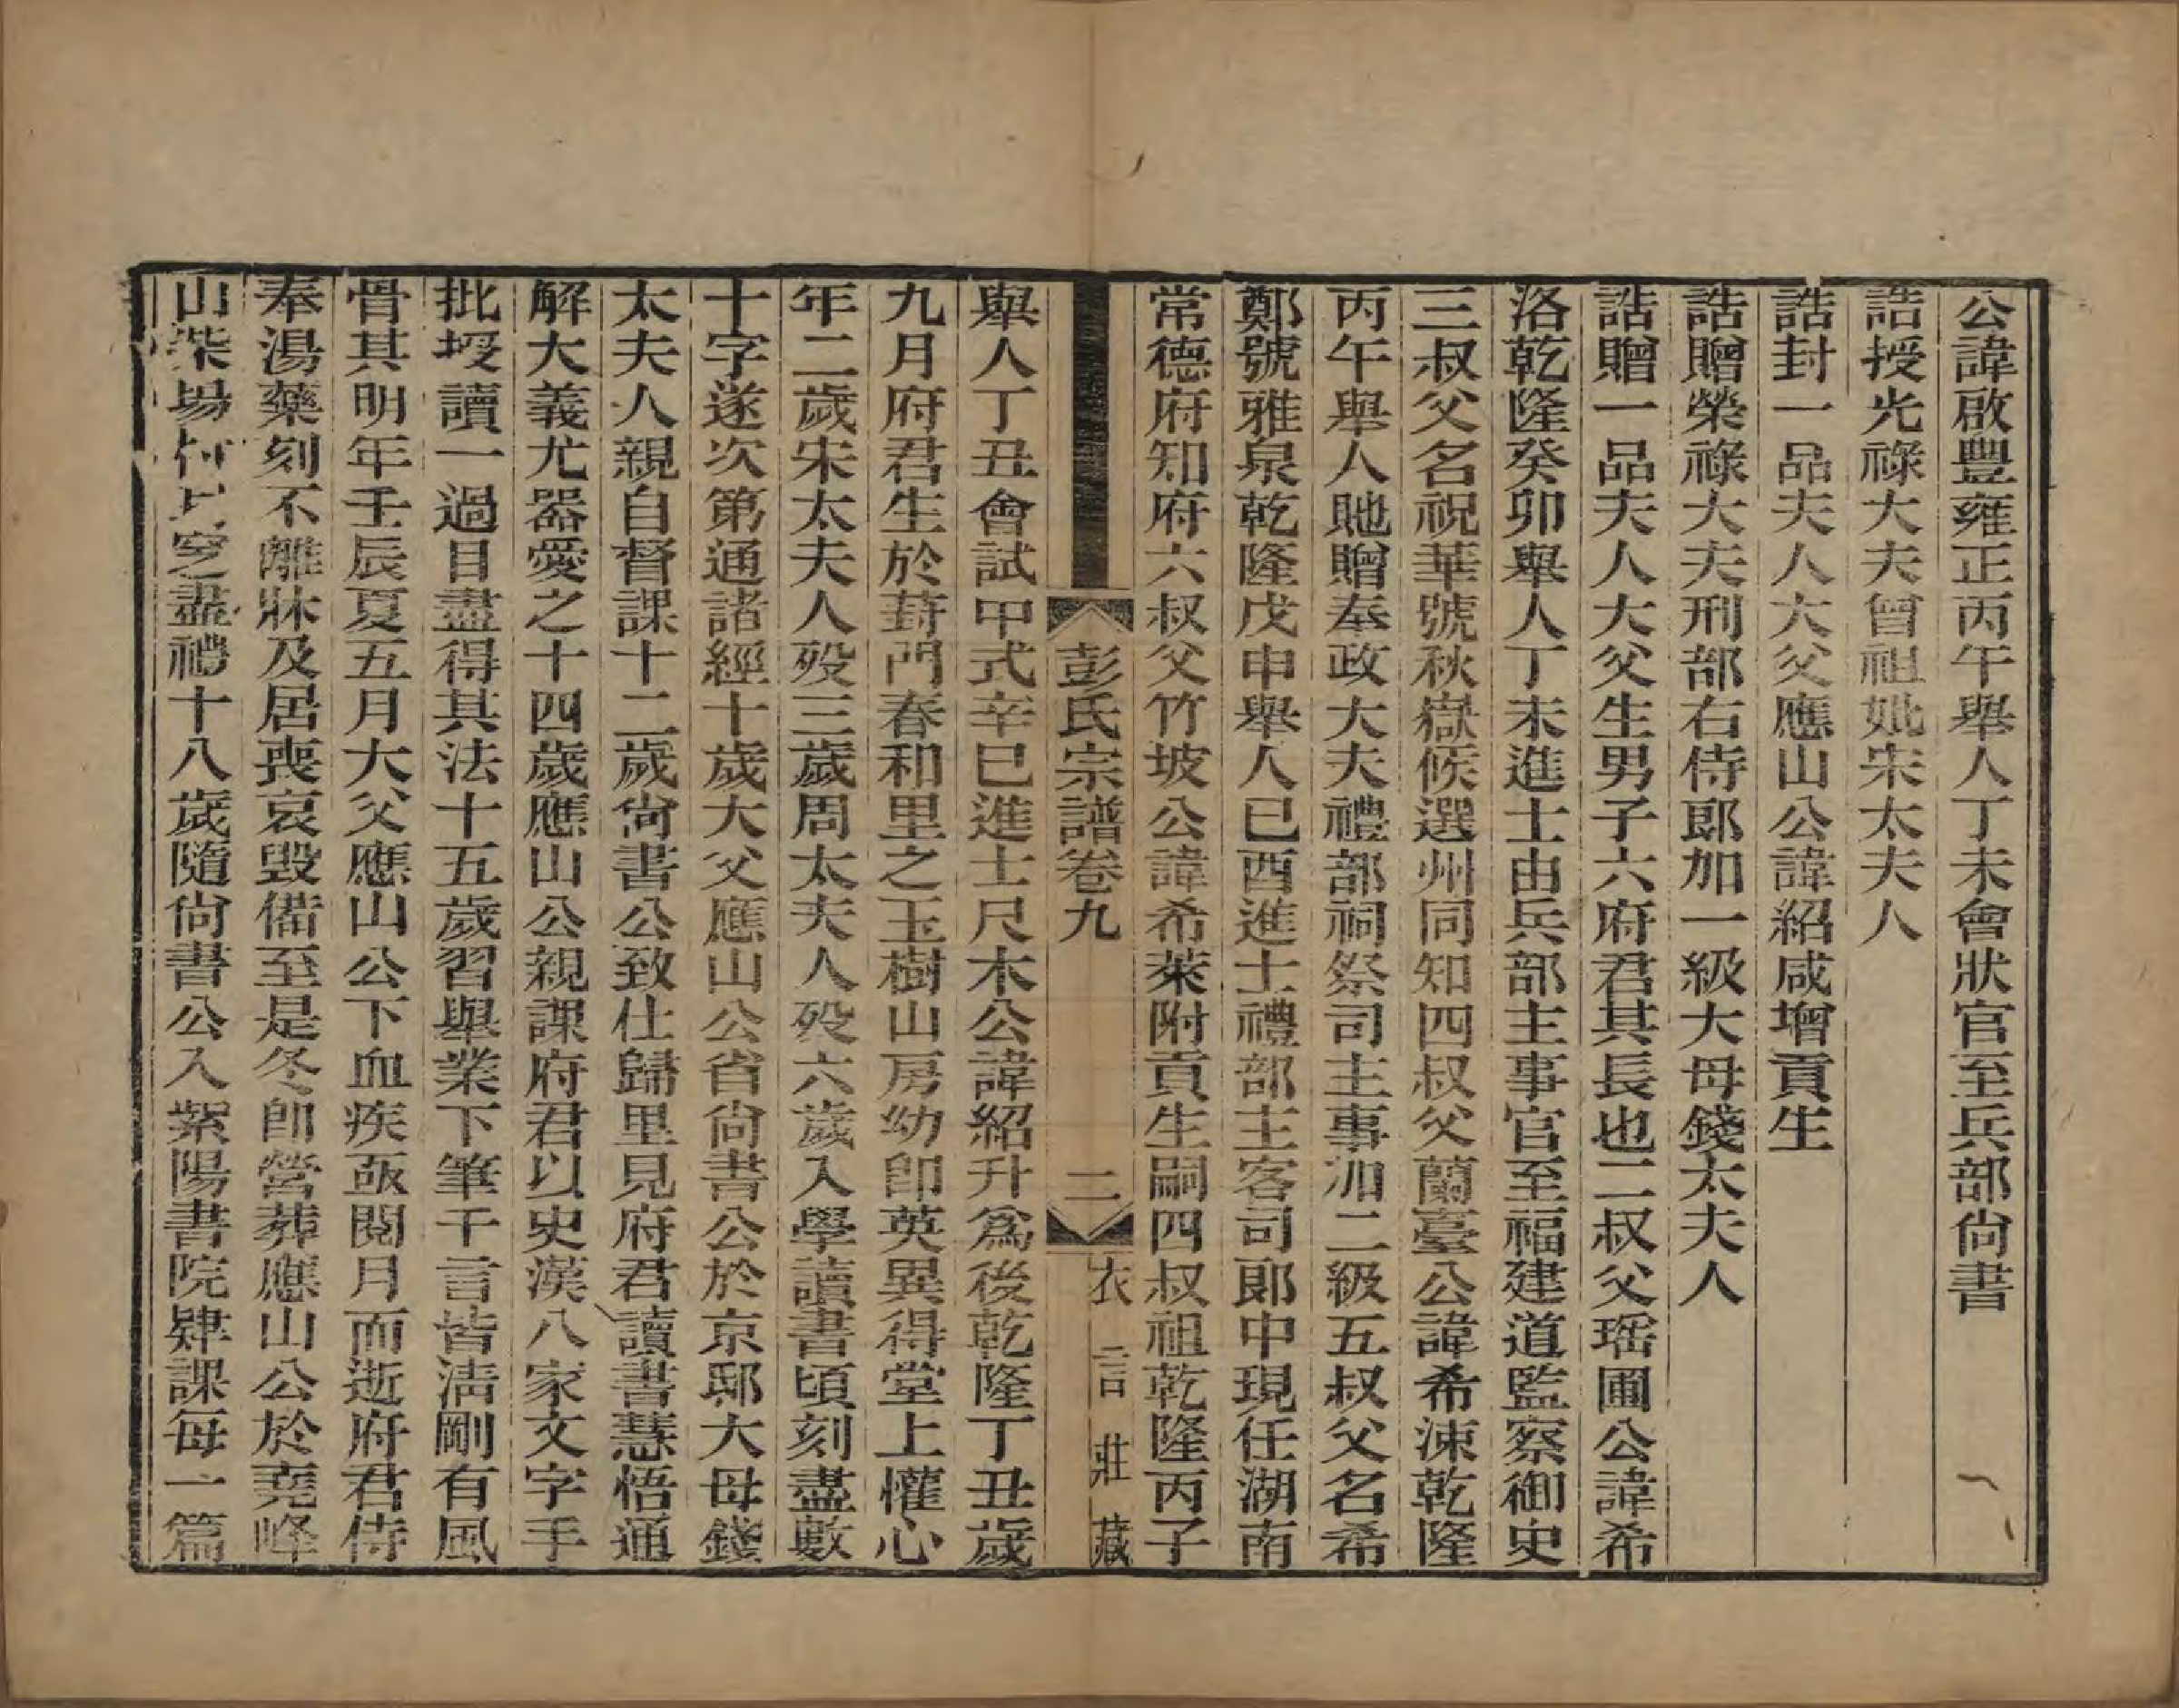 公諱啟豐雍正丙午舉人丁未會狀官至兵部尚書
誥授光祿大夫曾祖妣宋太夫人
誥封一品夫人大父應山公諱紹咸增貢生
誥贈榮祿大夫刑部右侍郎加一級大母錢太夫人
誥贈一品夫人大父生男子六府君其長也二叔父瑶圃公諱希
洛乾隆癸卯舉人丁未進士由兵部主事官至福建道監察御史
三叔父名祝華號秋嶽候選州同知四叔父蘭臺公諱希涑乾隆
丙午舉人貤贈奉政大夫禮部祠祭司主事加二級五叔父名希
鄭號雅泉乾隆戊申舉人已酉進士禮部主客司郎中現任湖南
常德府知府六叔父竹坡公諱希萊附貢生嗣四叔祖乾隆丙子
彭氏宗譜卷九
二
衣言莊藏
舉人丁丑會試中式辛巳進士尺木公諱紹升爲後乾隆丁丑歲
九月府君生於葑門春和里之玉樹山房幼卽英異得堂上懽心
年二歲宋太夫人歿三歲周太夫人歿六歲入學讀書頃刻盡數
十字遂次第通諸經十歲大父應山公省尚書公於京邸大母錢
太夫人親自督課十二歲尙書公致仕歸里見府君讀書慧悟通
解大義尤器愛之十四歲應山公親課府君以史漢八家文字手
批授讀一過目盡得其法十五歲習舉業下筆千言皆清剛有風
骨其明年壬辰夏五月大父應山公下血疾亟閱月而逝府君侍
奉湯藥刻不離牀及居喪哀毀備至是冬卽營葬應山公於堯峰
山柴場盡禮十八歲隨尙書公入紫陽書院肄課每一篇